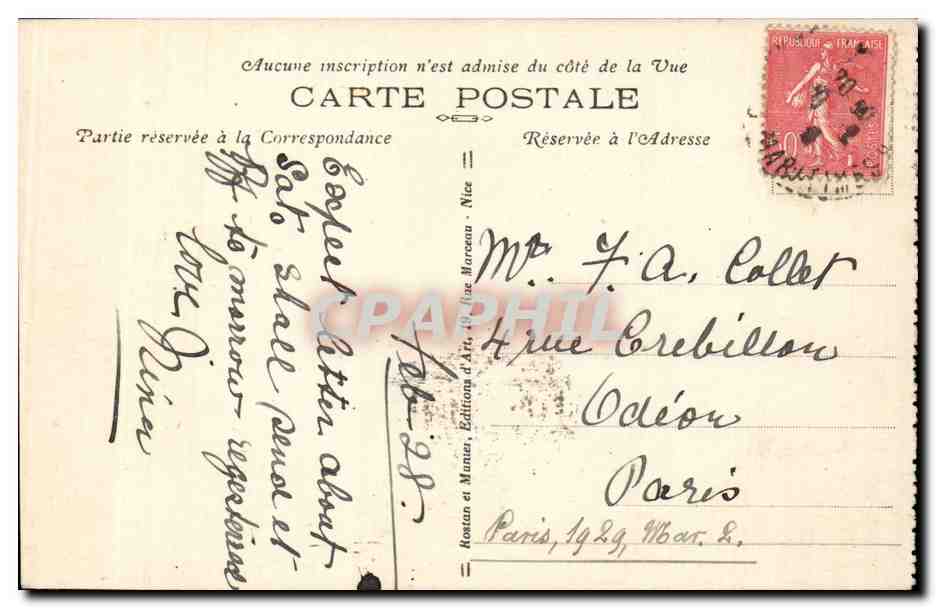 Aucune inscription n'est admise du côté de la Vue
CARTE POSTALE
Partie réservée à la Correspondance
Réservée à l'Adresse
REPUBLIQUE FRANÇAISE
POSTES
Feb-28.
Expect letter about
Sat. Shall send it
off to-morrow
Love, Nina
Rostan et Munier, Editions d'Art, 19, Rue Marceau - Nice
Mr. F. A. Collet
4 rue Crebillon
Odéon
Paris
Paris, 1929, Mar. 2.
CPAPHIL